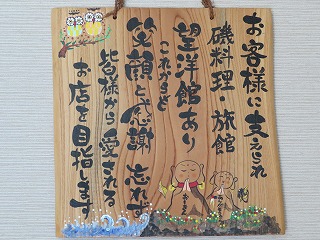 お客様に支えられ
磯料理・旅館
望洋館あり
これからも
笑顔と感謝忘れず
皆様から愛される
お店を目指します